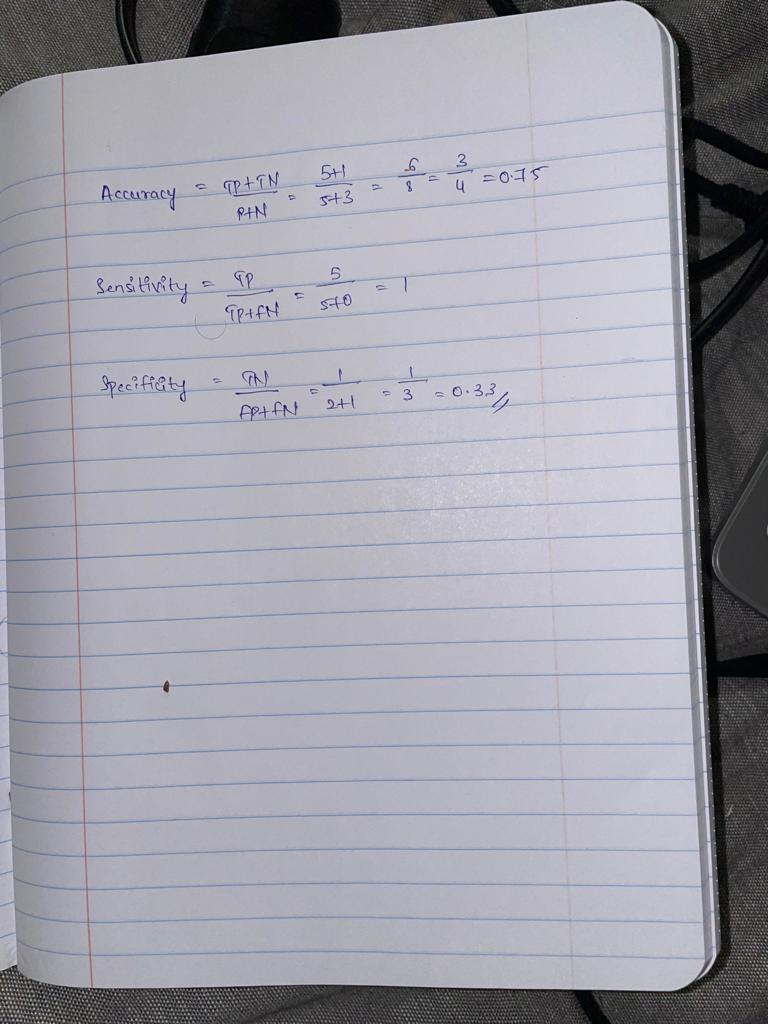 Accuracy = TP+TN / P+N = 5+1 / 5+3 = 6/8 = 3/4 = 0.75
Sensitivity = TP / TP+FN = 5 / 5+0 = 1
Specificity = TN / FP+FN = 1 / 2+1 = 1/3 = 0.33